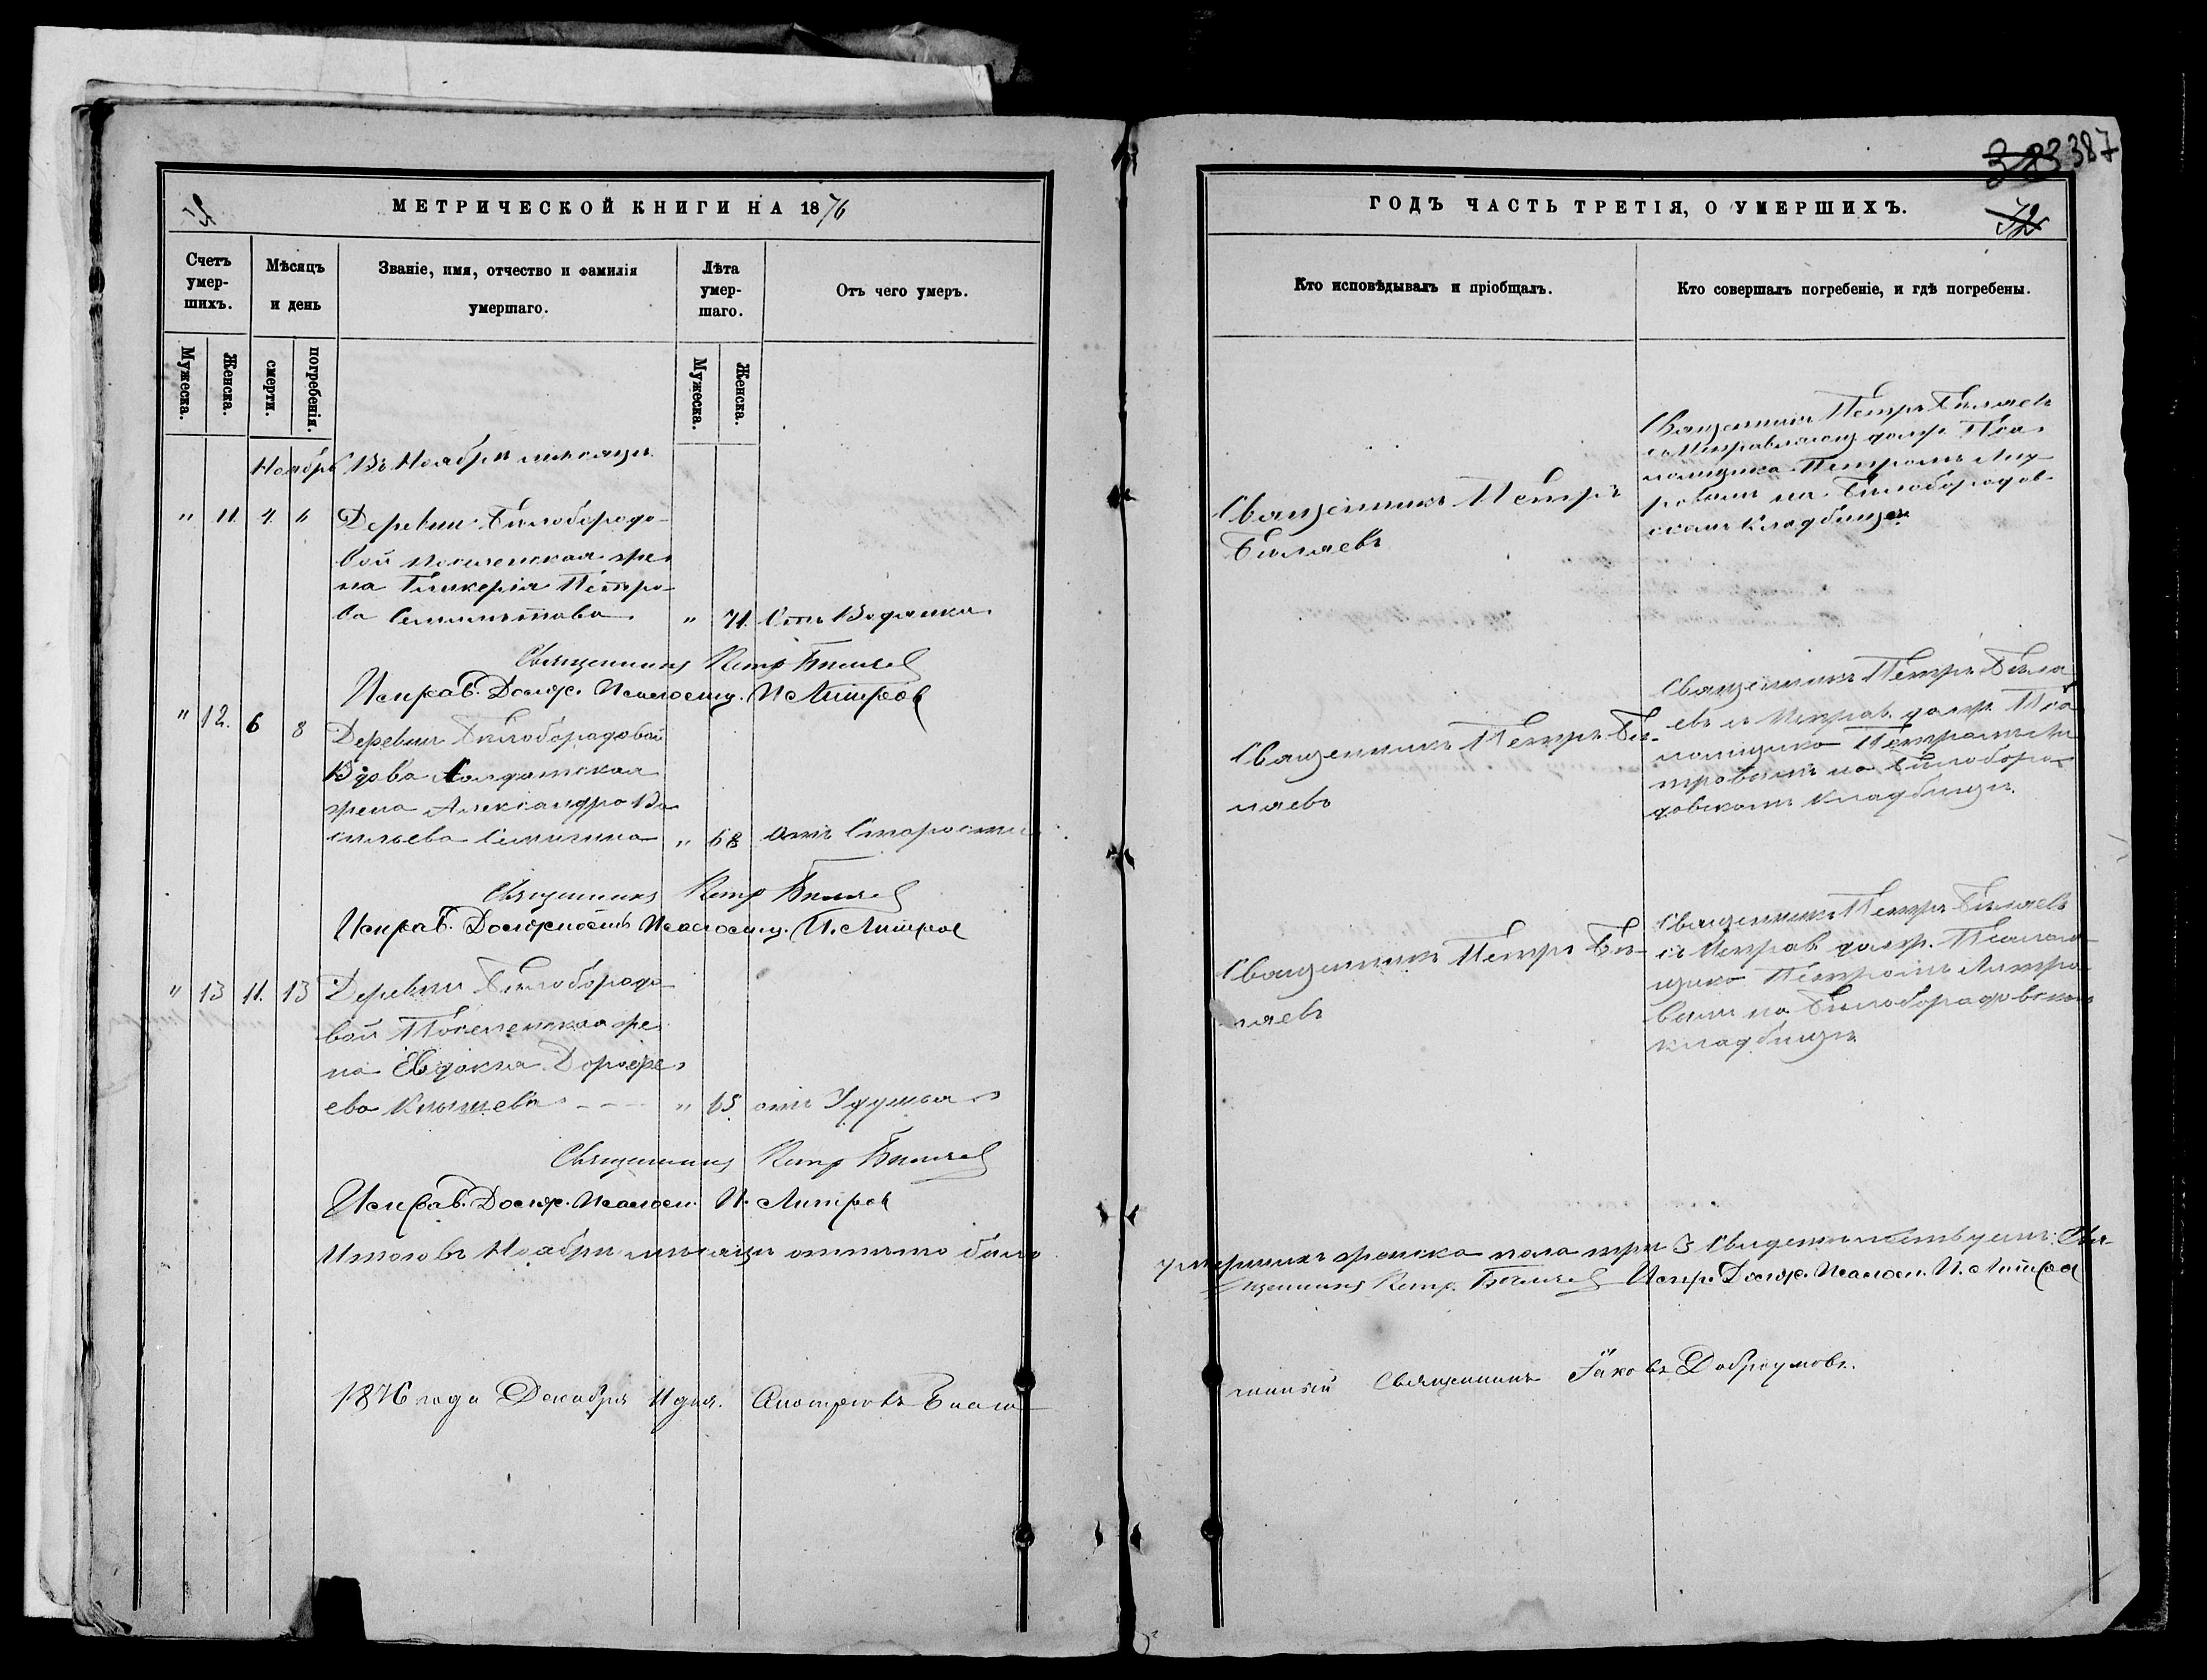 383 387
МЕТРИЧЕСКОЙ КНИГИ НА 1876
ГОДЪ ЧАСТЬ ТРЕТІЯ, О УМЕРШИХЪ.
72
Счетъ умер-шихъ.
Мѣсяцъ и день
Званіе, имя, отчество и фамилія умершаго.
Лѣта умер-шаго.
Отъ чего умеръ.
Кто исповѣдывалъ и пріобщалъ.
Кто совершалъ погребеніе, и гдѣ погребены.
Мужеска.
Женска.
смерти.
погребенія.
Мужеска.
Женска.
Ноябрь Въ Ноябрѣ мѣсяцѣ
" 11. 4. 6 Деревни Бѣлобородо-
вой поселенская же-
на Гликерія Петро-
ва " 71. Отъ Водянки
Священникъ Петръ
Бѣляевъ
Священникъ Петръ Бѣляевъ
съ Исправляющ. долж. Пса-
ломщика Петромъ Лит-
ровымъ на Бѣлобородов-
скомъ кладбищѣ
Священникъ Петръ Бѣляевъ
Исправ. Долж. Псаломщ. П. Литровъ
" 12. 6 8 Деревни Бѣлобородовой
Вдова Солдатская
жена Александра Ва-
сильева " 68 отъ Старости
Священникъ Петръ Бѣ-
ляевъ
Священникъ Петръ Бѣля-
евъ съ Исправ. долж. Пса-
ломщика Петромъ Ли-
тровымъ на Бѣлоборо-
довскомъ кладбищѣ.
Священникъ Петръ Бѣляевъ
Исправ. Должность Псаломщ. П. Литровъ
" 13 11. 13 Деревни Бѣлобородо-
вой Поселенская же-
на Евдокія Дорофе-
ева " 65 отъ Удушья
Священникъ Петръ Бѣ-
ляевъ
Священникъ Петръ Бѣляевъ
съ Исправ. долж. Псалом-
щика Петромъ Литро-
вымъ на Бѣлобородовскомъ
кладбищѣ
Священникъ Петръ Бѣляевъ
Исправ. Долж. Псалом. П. Литровъ
Итого въ Ноябрѣ мѣсяцѣ было умершихъ женска пола три 3 Свидѣтельствуемъ: Свя-
щенникъ Петръ Бѣляевъ Испр. Долж. Псалом. П. Литровъ
1876 года Декабря 11 дня. Смотрѣлъ Благо-
чинный Священникъ Іаковъ Доброумовъ.